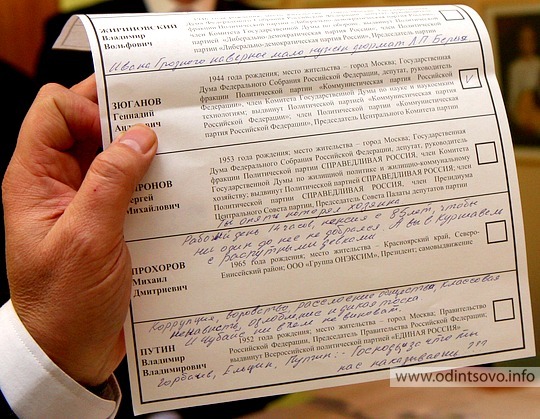 ЖИРИНОВСКИЙ
Владимир
Вольфович
партии «Либерально-демократическая партия России»
Ивана Грозного наверное мало нужен формат Л.П. Берия
ЗЮГАНОВ
Геннадий
1944 года рождения; место жительства – город Москва; Государственная
Дума Федерального Собрания Российской Федерации, депутат, руководитель
фракции Политической партии "Коммунистическая партия Российской
Федерации", член Комитета Государственной Думы по науке и наукоемким
технологиям; выдвинут Политической партией «Коммунистическая
партия Российской Федерации»; член Политической партии «Коммунистическая
партия Российской Федерации», Председатель Центрального Комитета партии
V
МИРОНОВ
Сергей
Михайлович
1953 года рождения; место жительства – город Москва; Государственная
Дума Федерального Собрания Российской Федерации, депутат, руководитель
фракции Политической партии СПРАВЕДЛИВАЯ РОССИЯ, член Комитета
Государственной Думы по жилищной политике и жилищно-коммунальному
хозяйству; выдвинут Политической партией СПРАВЕДЛИВАЯ РОССИЯ; член
Политической партии СПРАВЕДЛИВАЯ РОССИЯ, член Президиума
Центрального Совета партии, Председатель Совета Палаты депутатов партии
Вы опять потерял хозяина
Рабочий день 14 часов, пенсия с 85 лет, чтобы
ни один до нее не добрался. А вы в Куршавем
с распутными девками
ПРОХОРОВ
Михаил
Дмитриевич
1965 года рождения; место жительства – Красноярский край, Северо-
Енисейский район; ООО «Группа ОНЭКСИМ», Президент; самовыдвижение
Коррупция, воровство, расслоение общества, классовая
ненависть, озлобление и дикая тоска
И Чубайс ни в чем не виноват.
ПУТИН
Владимир
Владимирович
1952 года рождения; место жительства – город Москва; Правительство
Российской Федерации, Председатель Правительства Российской Федерации;
выдвинут Всероссийской политической партией «ЕДИНАЯ РОССИЯ»
Горбачев, Ельцин, Путин... Господи за что ты
нас наказываешь ???
www.odintsovo.info